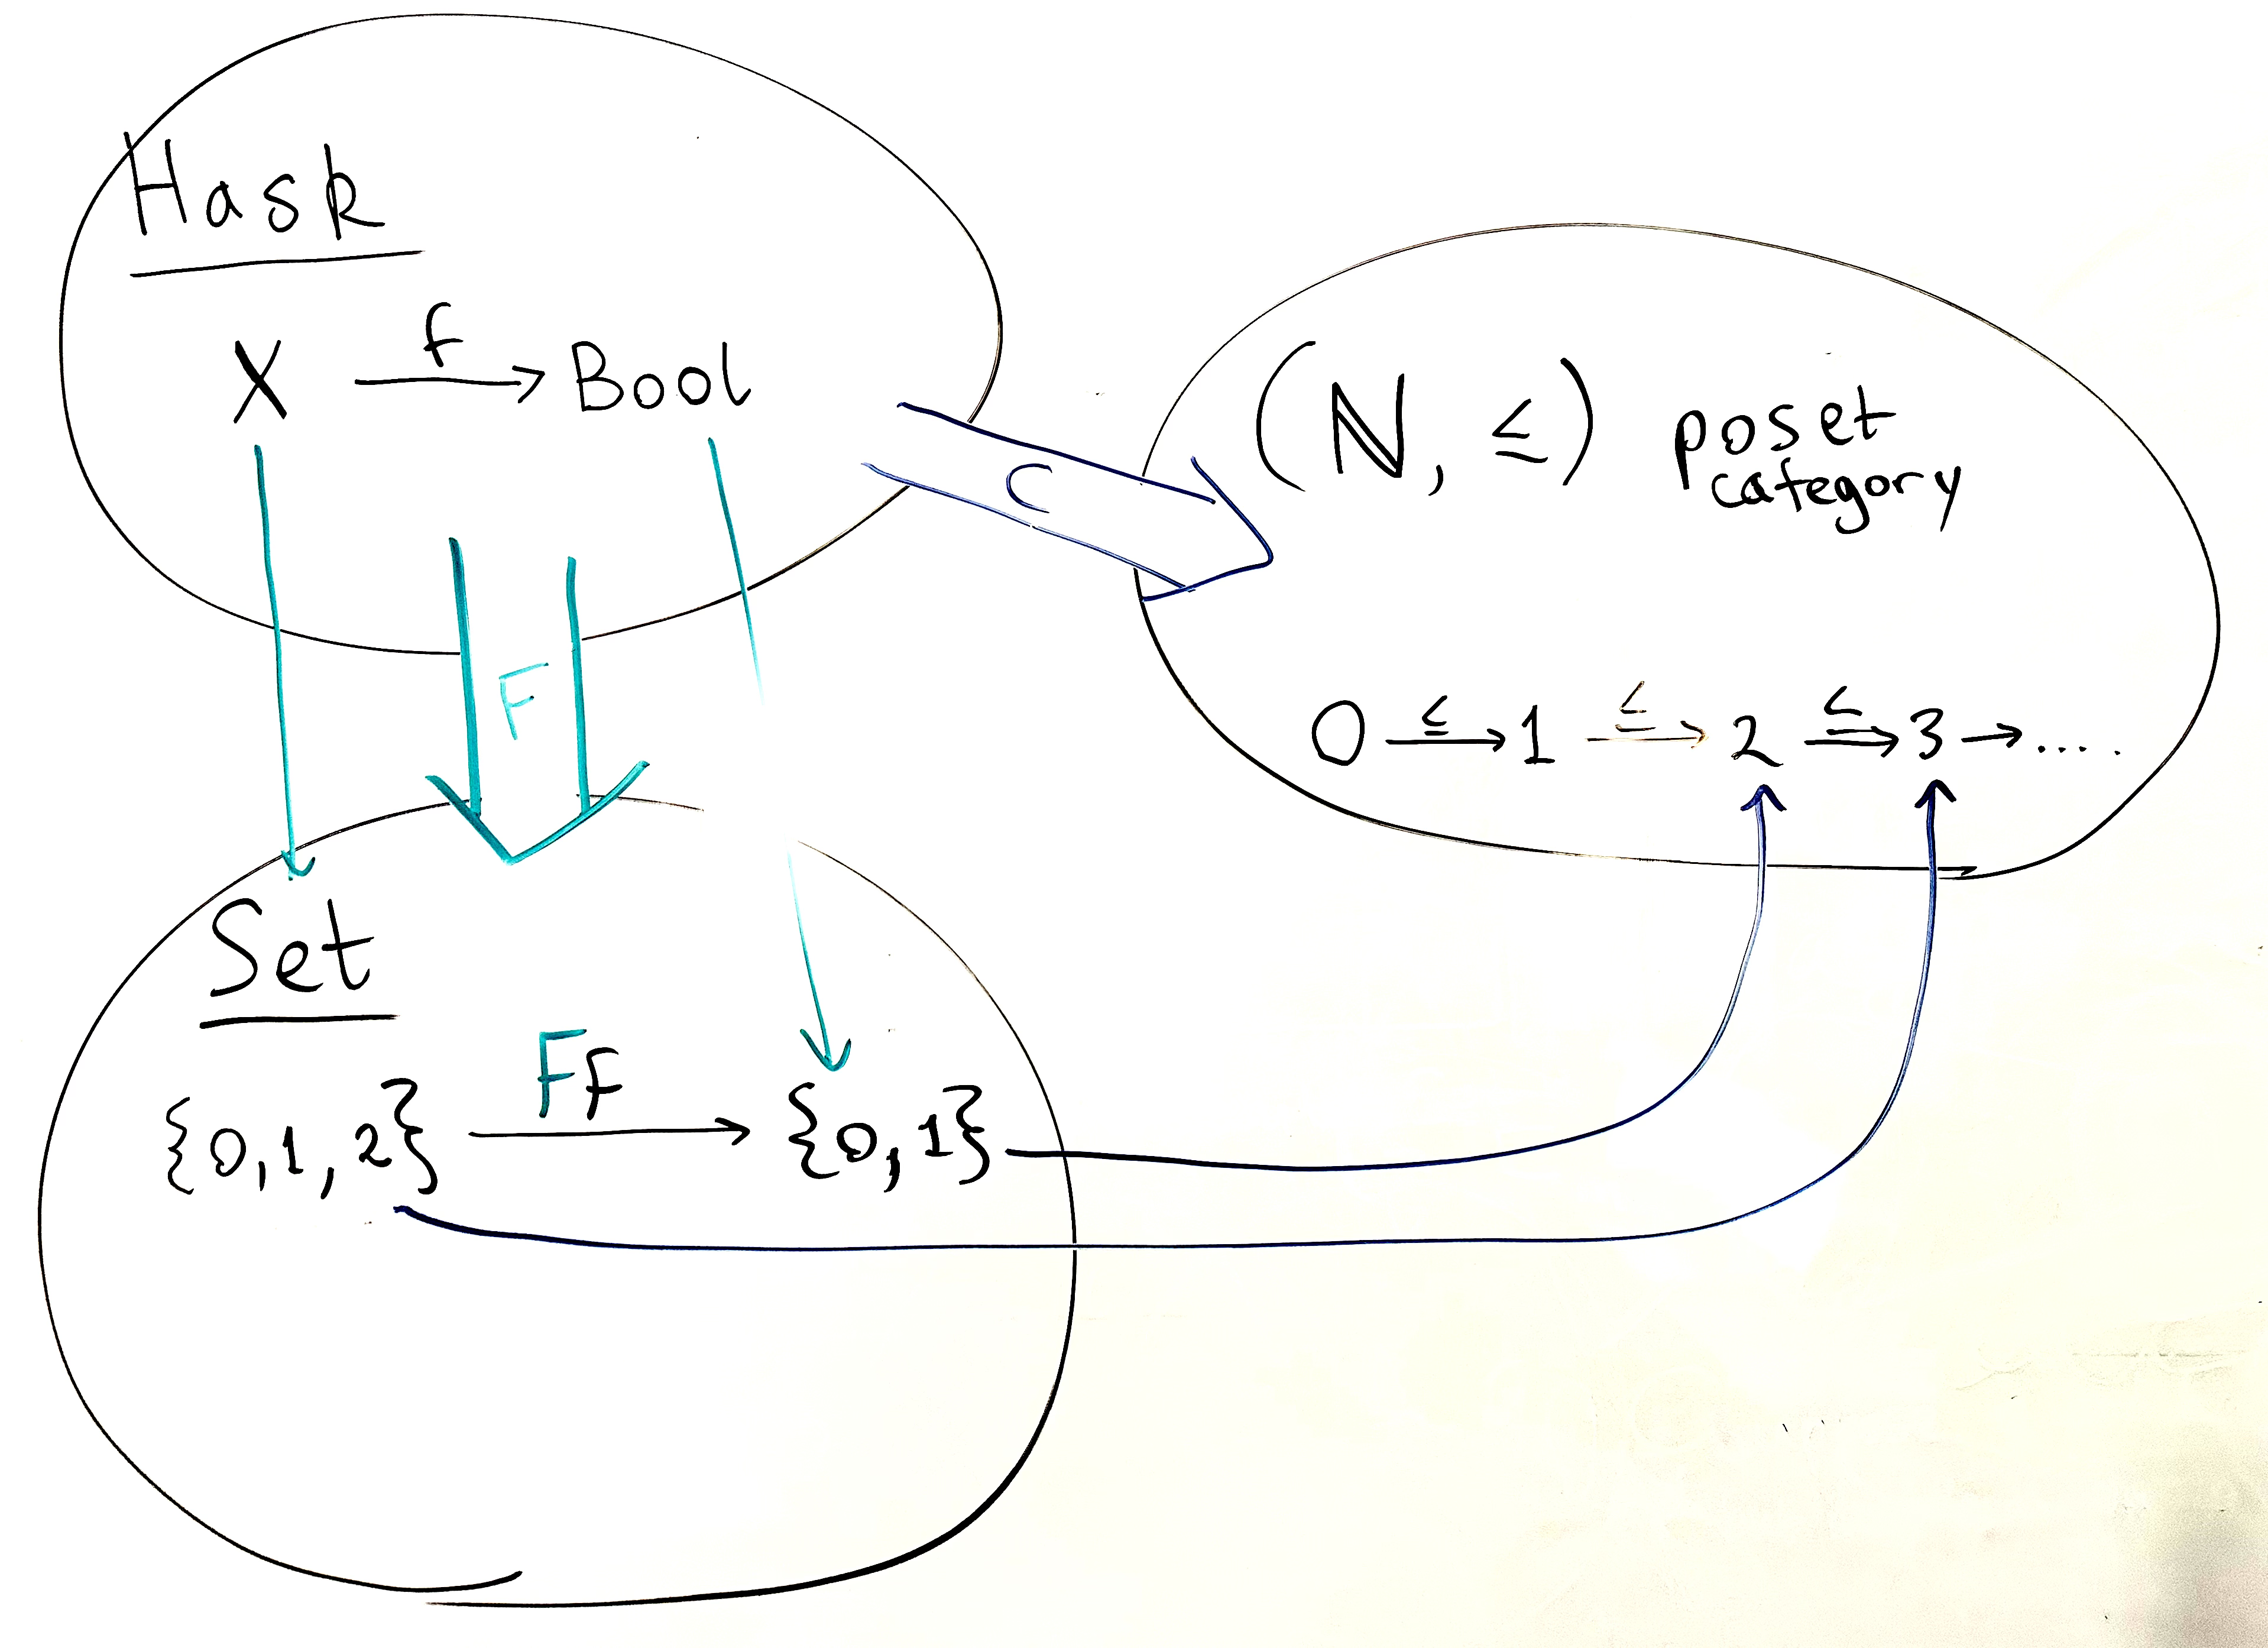 Hask
X f→ Bool
C
(ℕ, ≤) poset
category
F
0 ≤→ 1 ≤→ 2 ≤→ 3 → .....
Set
Ff
{0,1,2} → {0,1}